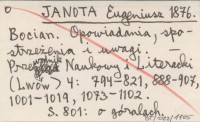 JANOTA Eugeniusz 1876.
Bocian. Opowiadania, spo-
strzeżenia i uwagi. —
Przewodnik Naukowy i Literacki
(Lwów) 4: 794-821, 888-907,
1001-1019, 1073-1102.
S. 801: o góralach